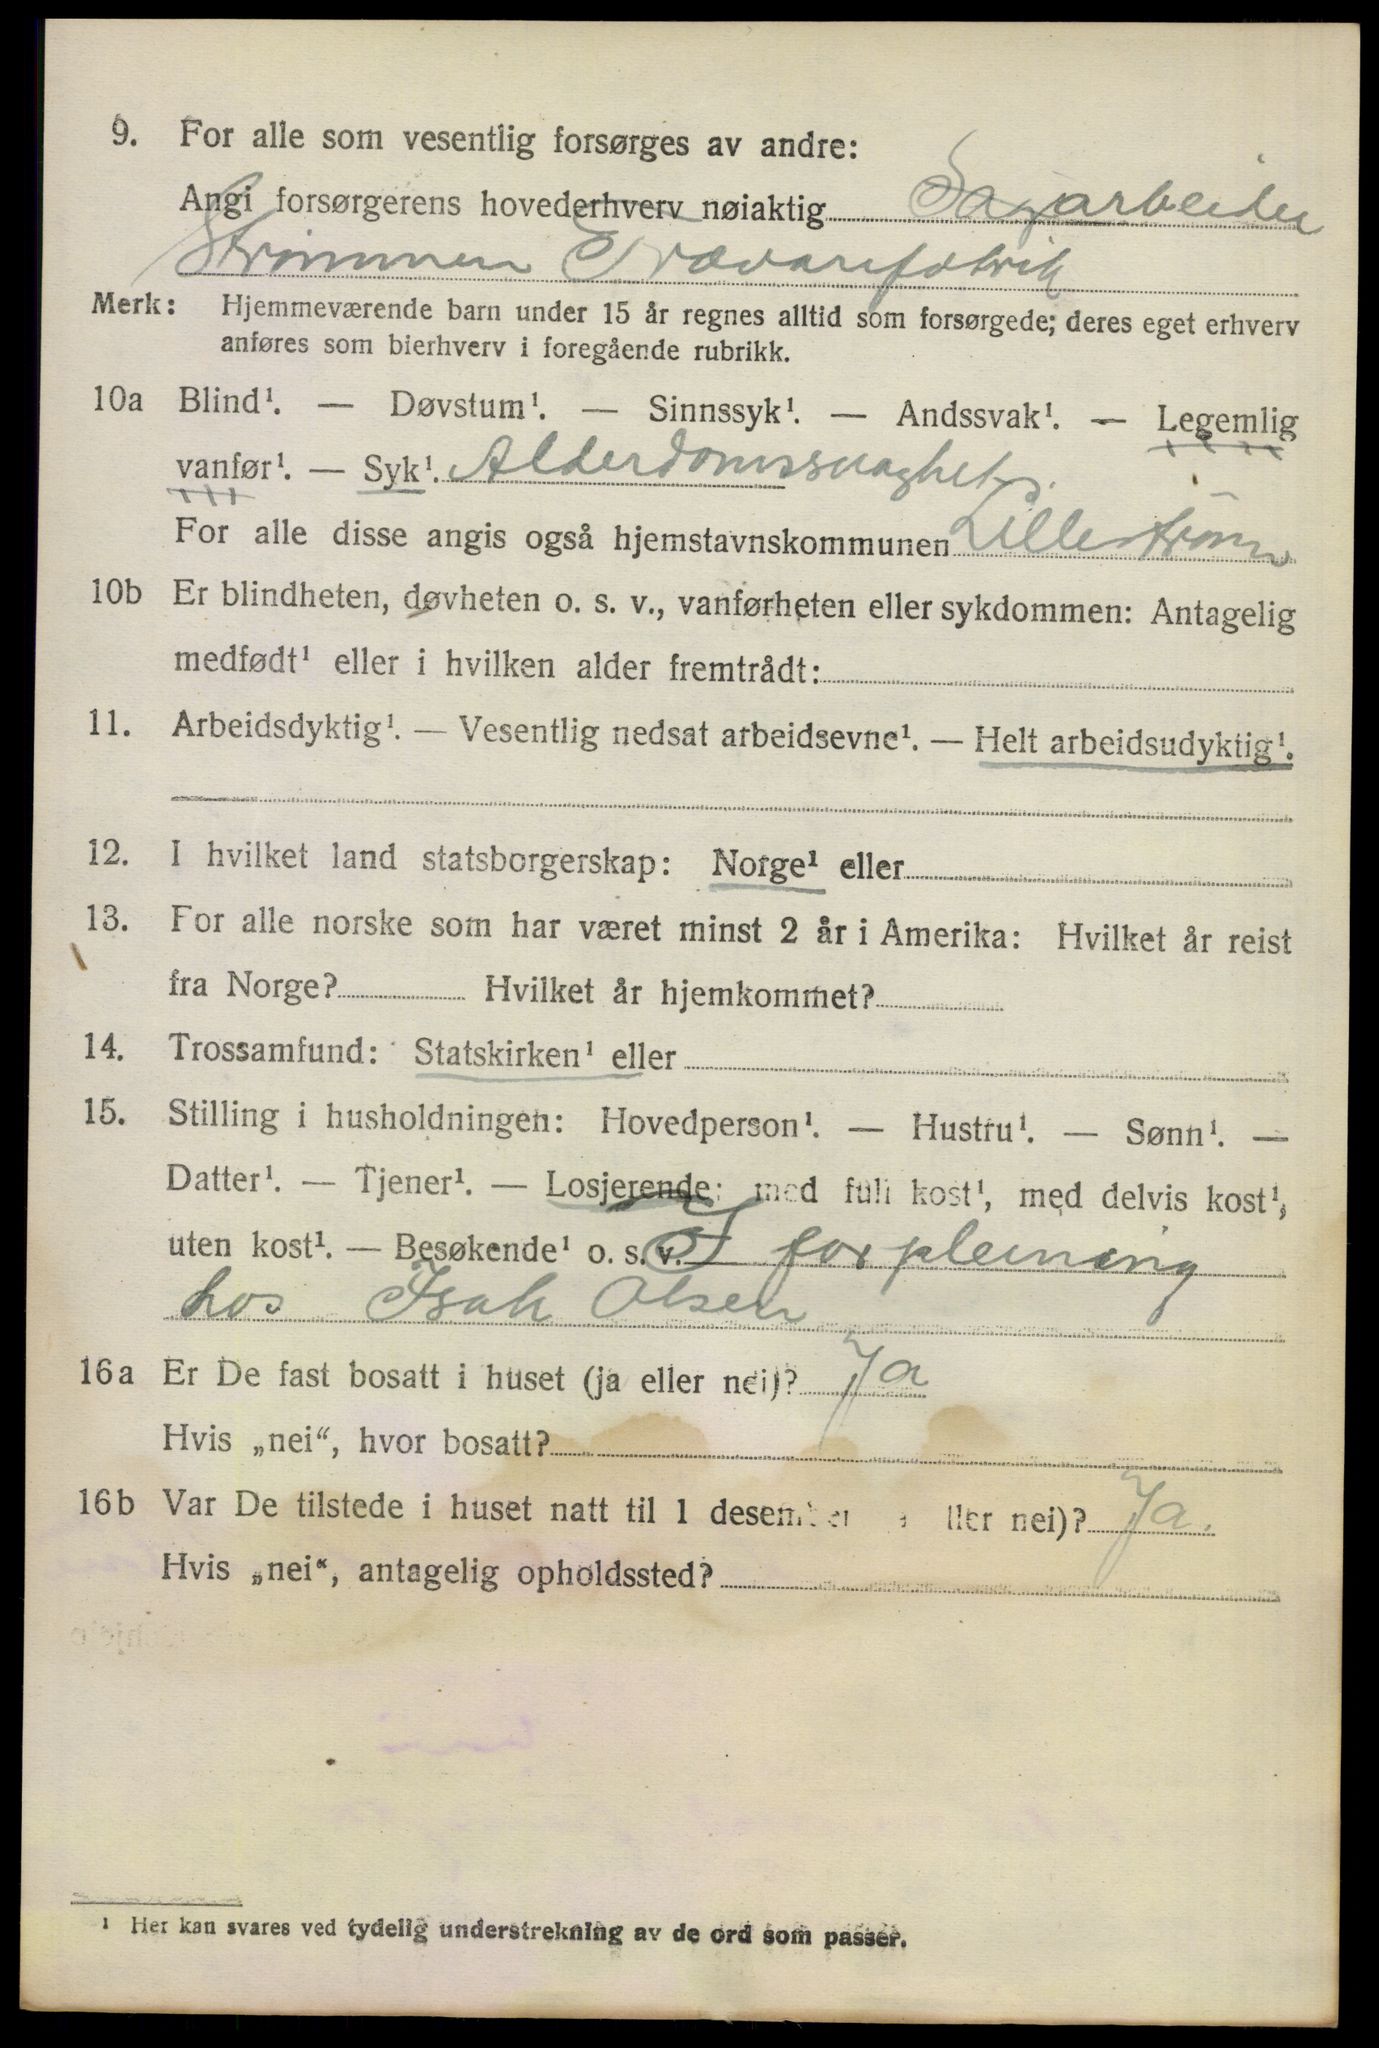 9. For alle som vesentlig forsørges av andre:
Angi forsørgerens hovederhverv nøiaktig Sagarbeider
Strømmen Trævarefabrik
Merk: Hjemmeværende barn under 15 år regnes alltid som forsørgede; deres eget erhverv
anføres som bierhverv i foregående rubrikk.
10a Blind¹. — Døvstum¹. — Sinnssyk¹. — Andssvak¹. — Legemlig
vanfør¹. — Syk¹. Alderdomssvaghet.
For alle disse angis også hjemstavnskommunen Lillestrøm
10b Er blindheten, døvheten o. s. v., vanførheten eller sykdommen: Antagelig
medfødt¹ eller i hvilken alder fremtrådt:
11. Arbeidsdyktig¹. — Vesentlig nedsat arbeidsevne¹. — Helt arbeidsudyktig¹.
12. I hvilket land statsborgerskap: Norge¹ eller
13. For alle norske som har været minst 2 år i Amerika: Hvilket år reist
fra Norge? Hvilket år hjemkommet?
14. Trossamfund: Statskirken¹ eller
15. Stilling i husholdningen: Hovedperson¹. — Hustru¹. — Sønn¹. —
Datter¹. — Tjener¹. — Losjerende: med full kost¹, med delvis kost¹,
uten kost¹. — Besøkende¹ o. s. v. I forpleining
hos Isak Olsen
16a Er De fast bosatt i huset (ja eller nei)? Ja
Hvis „nei“, hvor bosatt?
16b Var De tilstede i huset natt til 1 desember ller nei)? Ja.
Hvis „nei“, antagelig opholdssted?
¹ Her kan svares ved tydelig understrekning av de ord som passer.